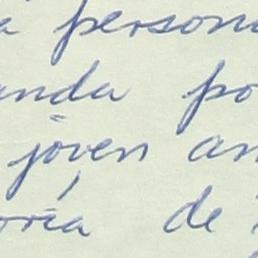 a person
anda po
joven an
oria de